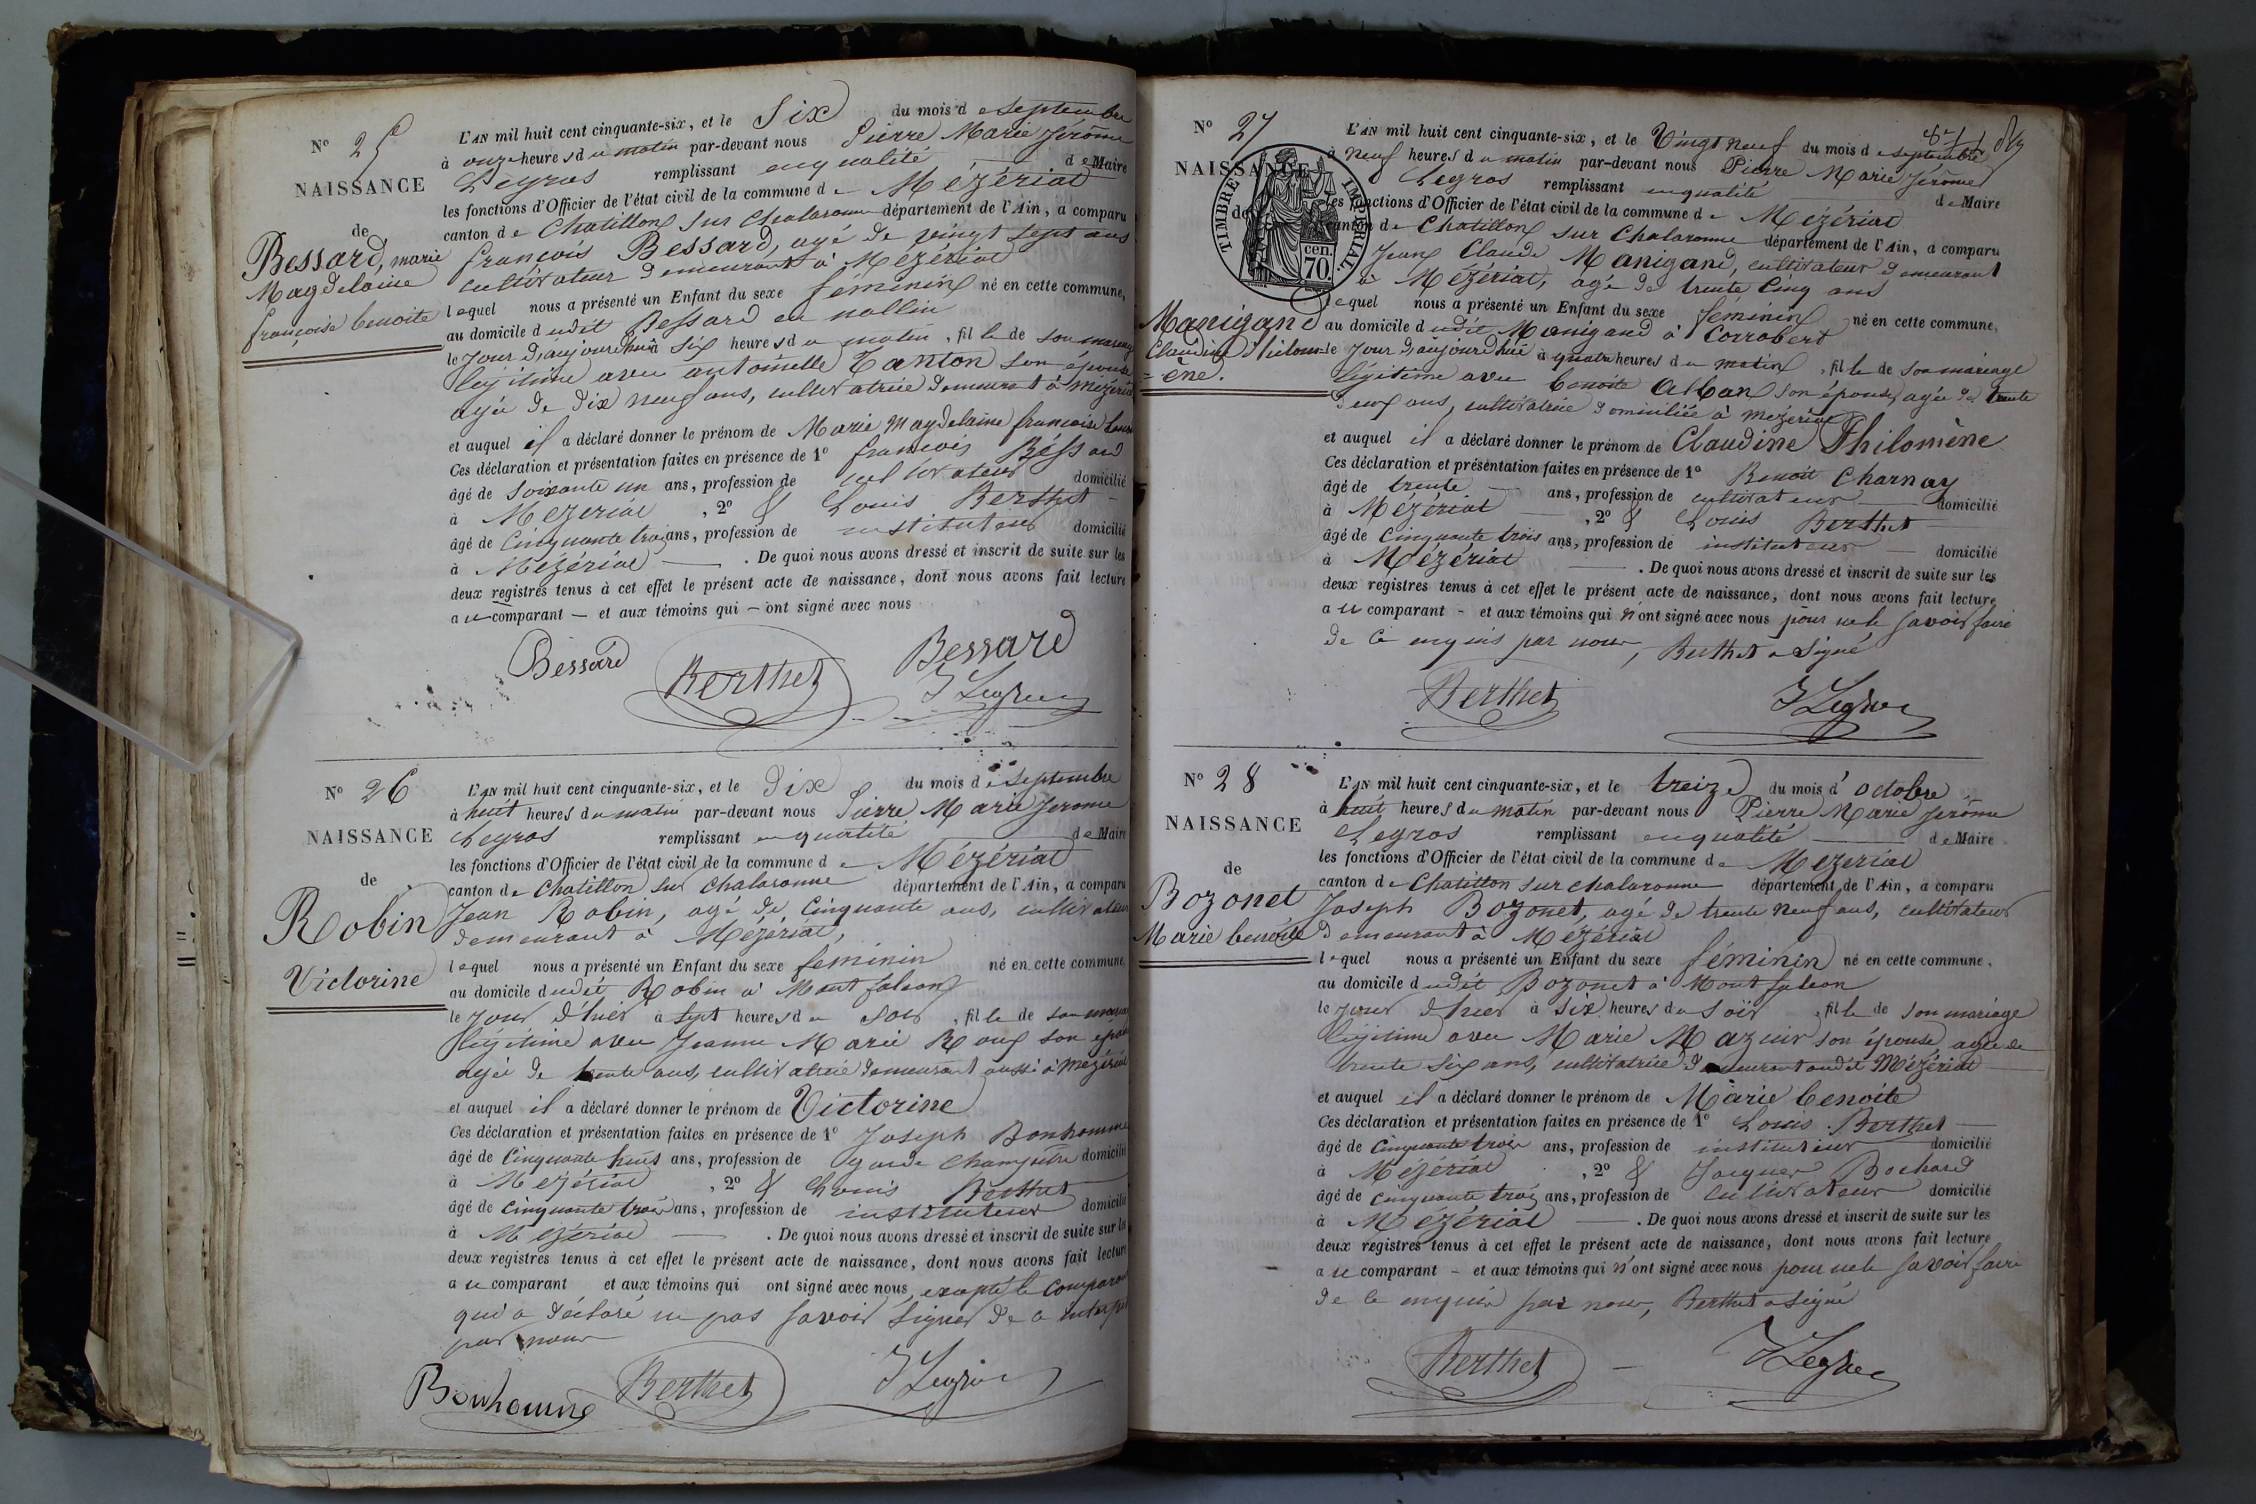 N° 25
NAISSANCE
de
Bessard, marie
Magdelaine
françoise benoite
L'AN mil huit cent cinquante-six, et le Six du mois de septembre
à onze heures du matin par-devant nous Pierre Marie Jérome
Legros remplissant en qualité de Maire
les fonctions d'Officier de l'état civil de la commune de Mézériat
canton de Chatillon sur Chalaronne département de l'Ain, a comparu
françois Bessard, agé de vingt sept ans
cultivateur demeurant à Mézériat
lequel nous a présenté un Enfant du sexe féminin né en cette commune,
au domicile dudit Bessard en nollin
le jour d'aujourdhui à six heures du matin, fille de son mariage
légitime avec antoinette Tanton son épouse
agée de dix neuf ans, cultivatrice demeurant à Mézériat
et auquel il a déclaré donner le prénom de Marie Magdelaine françoise
Ces déclaration et présentation faites en présence de 1° françois Bessard
âgé de soixante un ans, profession de cultivateur domicilié
à Mézériat, 2° & Louis Berthet
âgé de Cinquante trois ans, profession de instituteur domicilié
à Mézériat. De quoi nous avons dressé et inscrit de suite sur les
deux registres tenus à cet effet le présent acte de naissance, dont nous avons fait lecture
au comparant — et aux témoins qui — ont signé avec nous
Bessard Berthet Bessard
J Legros
N° 26
NAISSANCE
de
Robin
Victorine
L'AN mil huit cent cinquante-six, et le Dix du mois de septembre
à huit heures du matin par-devant nous Pierre Marie Jerome
Legros remplissant en qualité de Maire
les fonctions d'Officier de l'état civil de la commune de Mézériat
canton de Chatillon sur Chalaronne département de l'Ain, a comparu
Jean Robin, agé de Cinquante ans, cultivateur
demeurant à Mézériat,
lequel nous a présenté un Enfant du sexe féminin né en cette commune,
au domicile dudit Robin à Montfalcon
le jour d'hier à sept heures du soir, fille de son mariage
légitime avec Jeanne Marie Roux son épouse
agée de trente ans, cultivatrice demeurant aussi à Mézériat
et auquel il a déclaré donner le prénom de Victorine
Ces déclaration et présentation faites en présence de 1° Joseph Bonhomme
âgé de Cinquante huit ans, profession de garde Champêtre domicilié
à Mézériat, 2° & Louis Berthet
âgé de Cinquante trois ans, profession de instituteur domicilié
à Mézériat. De quoi nous avons dressé et inscrit de suite sur les
deux registres tenus à cet effet le présent acte de naissance, dont nous avons fait lecture
au comparant et aux témoins qui ont signé avec nous, excepté le Comparant
qui a déclaré ne pas savoir signer de ce
par nous
Bonhomme Berthet J Legros
N° 27
NAISSANCE
de
TIMBRE IMPERIAL.
cen.
70.
Manigand
Claudine Philom
=ène.
L'AN mil huit cent cinquante-six, et le Vingt neuf du mois de septembre
à neuf heures du matin par-devant nous Pierre Marie Jérôme
Legros remplissant en qualité de Maire
les fonctions d'Officier de l'état civil de la commune de Mézériat
canton de Chatillon sur Chalaronne département de l'Ain, a comparu
Jean Claude Manigand, cultivateur demeurant
à Mézériat, agé de trente Cinq ans
lequel nous a présenté un Enfant du sexe féminin né en cette commune,
au domicile dudit Manigand à Corrobert
le jour d'aujourdhui à quatre heures du matin, fille de son mariage
légitime avec benoite Alban son épouse, agée de trente
deux ans, cultivatrice domiciliée à Mézériat
et auquel il a déclaré donner le prénom de Claudine Philomène
Ces déclaration et présentation faites en présence de 1° Benoit Charnay
âgé de trente — ans, profession de cultivateur domicilié
à Mézériat —, 2° & Louis Berthet
âgé de Cinquante trois ans, profession de instituteur — domicilié
à Mézériat —. De quoi nous avons dressé et inscrit de suite sur les
deux registres tenus à cet effet le présent acte de naissance, dont nous avons fait lecture
au comparant - et aux témoins qui n'ont signé avec nous pour ne le savoir faire
de ce enquis par nous, Berthet a signé
Berthet J Legros
N° 28
NAISSANCE
de
Bozonet
Marie benoite
L'AN mil huit cent cinquante-six, et le treize du mois d'octobre
à huit heures du matin par-devant nous Pierre Marie Jerôme
Legros remplissant en qualité — de Maire
les fonctions d'Officier de l'état civil de la commune de Mézériat
canton de Chatillon sur chalaronne département de l'Ain, a comparu
Joseph Bozonet, agé de trente neuf ans, cultivateur
demeurant à Mézériat
lequel nous a présenté un Enfant du sexe féminin né en cette commune,
au domicile dudit Bozonet à Montfalcon
le jour d'hier à six heures du soir, fille de son mariage
légitime avec Marie Mazuir son épouse, agée de
trente six ans, cultivatrice demeurant audit Mézériat
et auquel il a déclaré donner le prénom de Marie benoite
Ces déclaration et présentation faites en présence de 1° Louis Berthet
âgé de Cinquante trois ans, profession de instituteur domicilié
à Mézériat, 2° & Jacques Bochard
âgé de cinquante trois ans, profession de cultivateur domicilié
à Mézériat —. De quoi nous avons dressé et inscrit de suite sur les
deux registres tenus à cet effet le présent acte de naissance, dont nous avons fait lecture
au comparant - et aux témoins qui n'ont signé avec nous pour ne le savoir faire
de ce enquis par nous, Berthet a signé
Berthet — J Legros